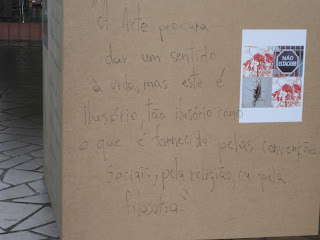 "A Arte procura
dar um sentido
à vida, mas este é
ilusório, tão ilusório como
o que é fornecido pelas convenções
sociais, pela religião, ou pela
filosofia."
NÃO
ESTACIONE